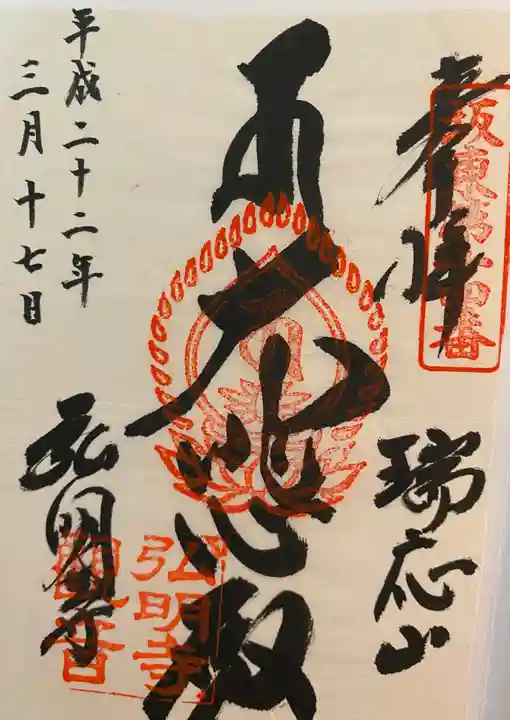 奉拝
坂東第十四番
瑞応山
大悲殿
弘明寺
弘明寺
観音
平成二十二年
三月十七日